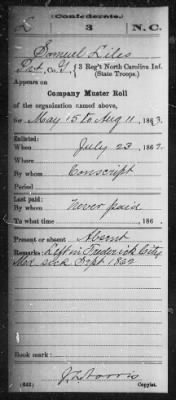 (Confederate.)
L 3 N.C.
Samuel Liles
Pvt, Co. G, 3 Reg't North Carolina Inf.
(State Troops.)
Appears on
Company Muster Roll
of the organization named above,
for May 15 to Aug 11, 1863.
Enlisted:
When July 23, 1862.
Where
By whom Conscript
Period
Last paid:
By whom never paid
To what time , 186 .
Present or absent Absent
Remarks: Left in Frederick City
Md sick Sept 1862
Book mark:
(642)
Copyist.